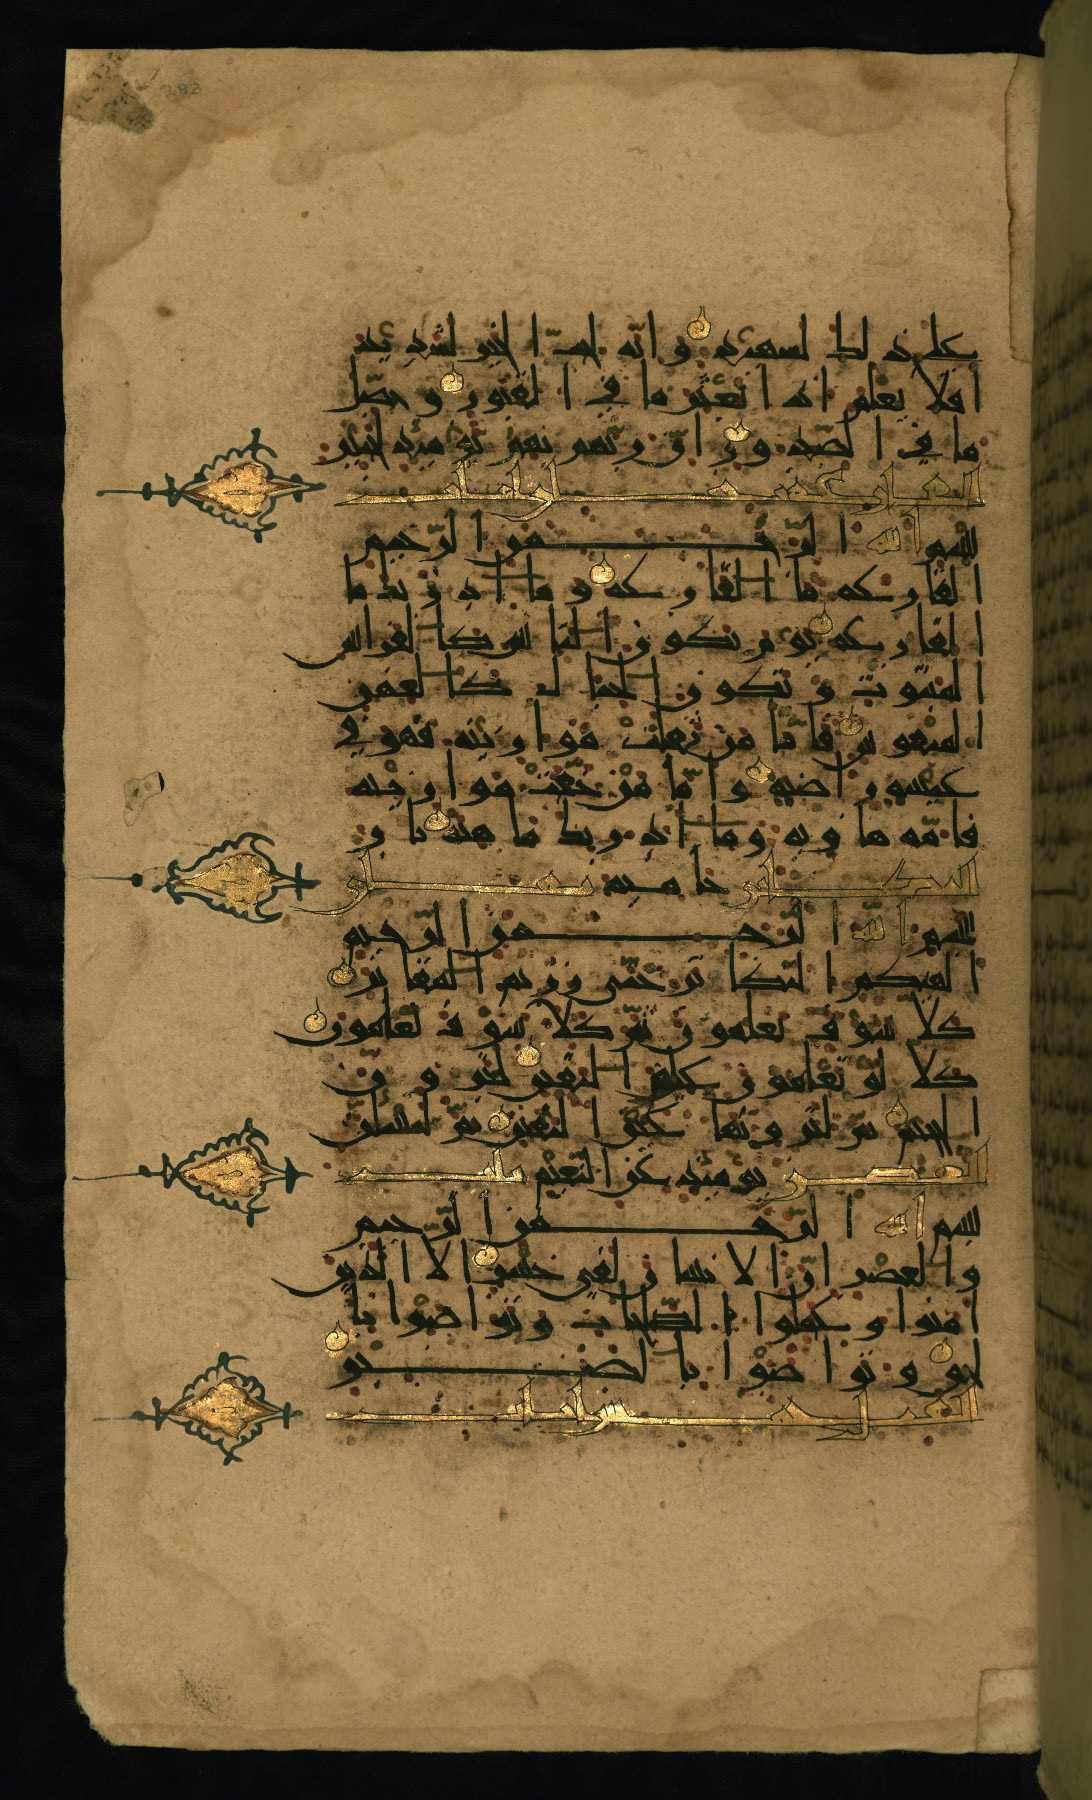 282
على ذلك لشهيد وانه لحب الخير لشديد
افلا يعلم اذا بعثر ما في القبور وحصل
ما في الصدور ان ربهم بهم يومئذ لخبير
القارعة
بسم الله الرحمن الرحيم
القارعة ما القارعة وما ادريك ما
القارعة يوم يكون الناس كالفراش
المبثوث وتكون الجبال كالعهن
المنفوش فاما من ثقلت موازينه فهو في
عيشة راضية واما من خفت موازينه
فامه هاوية وما ادريك ما هيه نار
التكاثر حامية
بسم الله الرحمن الرحيم
الهيكم التكاثر حتى زرتم المقابر
كلا سوف تعلمون ثم كلا سوف تعلمون
كلا لو تعلمون علم اليقين لترون
الجحيم ثم لترونها عين اليقين ثم لتسئلن
العصر يومئذ عن النعيم
بسم الله الرحمن الرحيم
والعصر ان الانسان لفي خسر الا الذين
امنوا وعملوا الصلحات وتواصوا با
لحق وتواصوا بالصبر
الهمزة